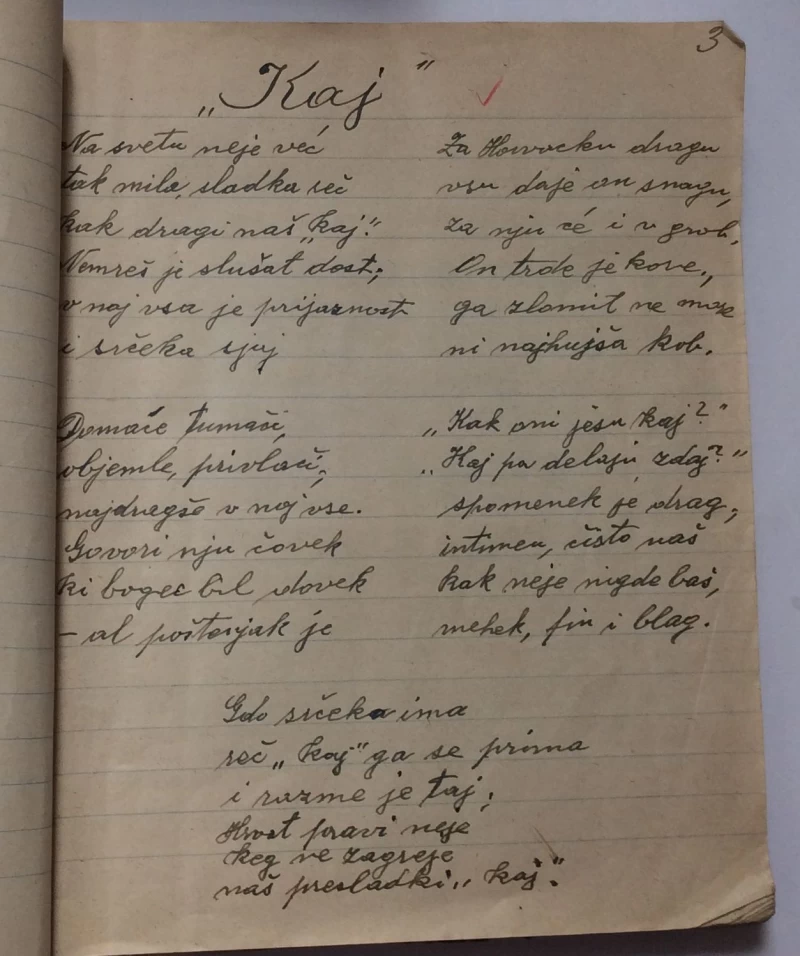 3
„Kaj"
Na svetu neje već
tak mila, sladka reč
kak dragi naš „kaj."
Nemreš je slušat dost;
v noj vsa je prijaznost
i srčeka sjaj
Domaće tumači,
objemle, privlači,
najdragše v noj vse.
Govori nju čovek
ki bogec bil dovek
– al poštenjak je
Za Horvocku dragu
vsu daje on snagu,
za nju če i v grob.
On trde je kove,
ga zlomit ne more
ni najhujša kob.
„Kak oni jesu kaj?"
„Kaj pa delaju zdaj?"
spomenek je drag,
intimen, čisto naš
kak neje nigde baš,
mehek, fin i blag.
Gdo srčeka ima
reč „kaj" ga se prima
i razme je taj;
Hrvat pravi neje
keg ne zagreje
naš presladki „kaj."